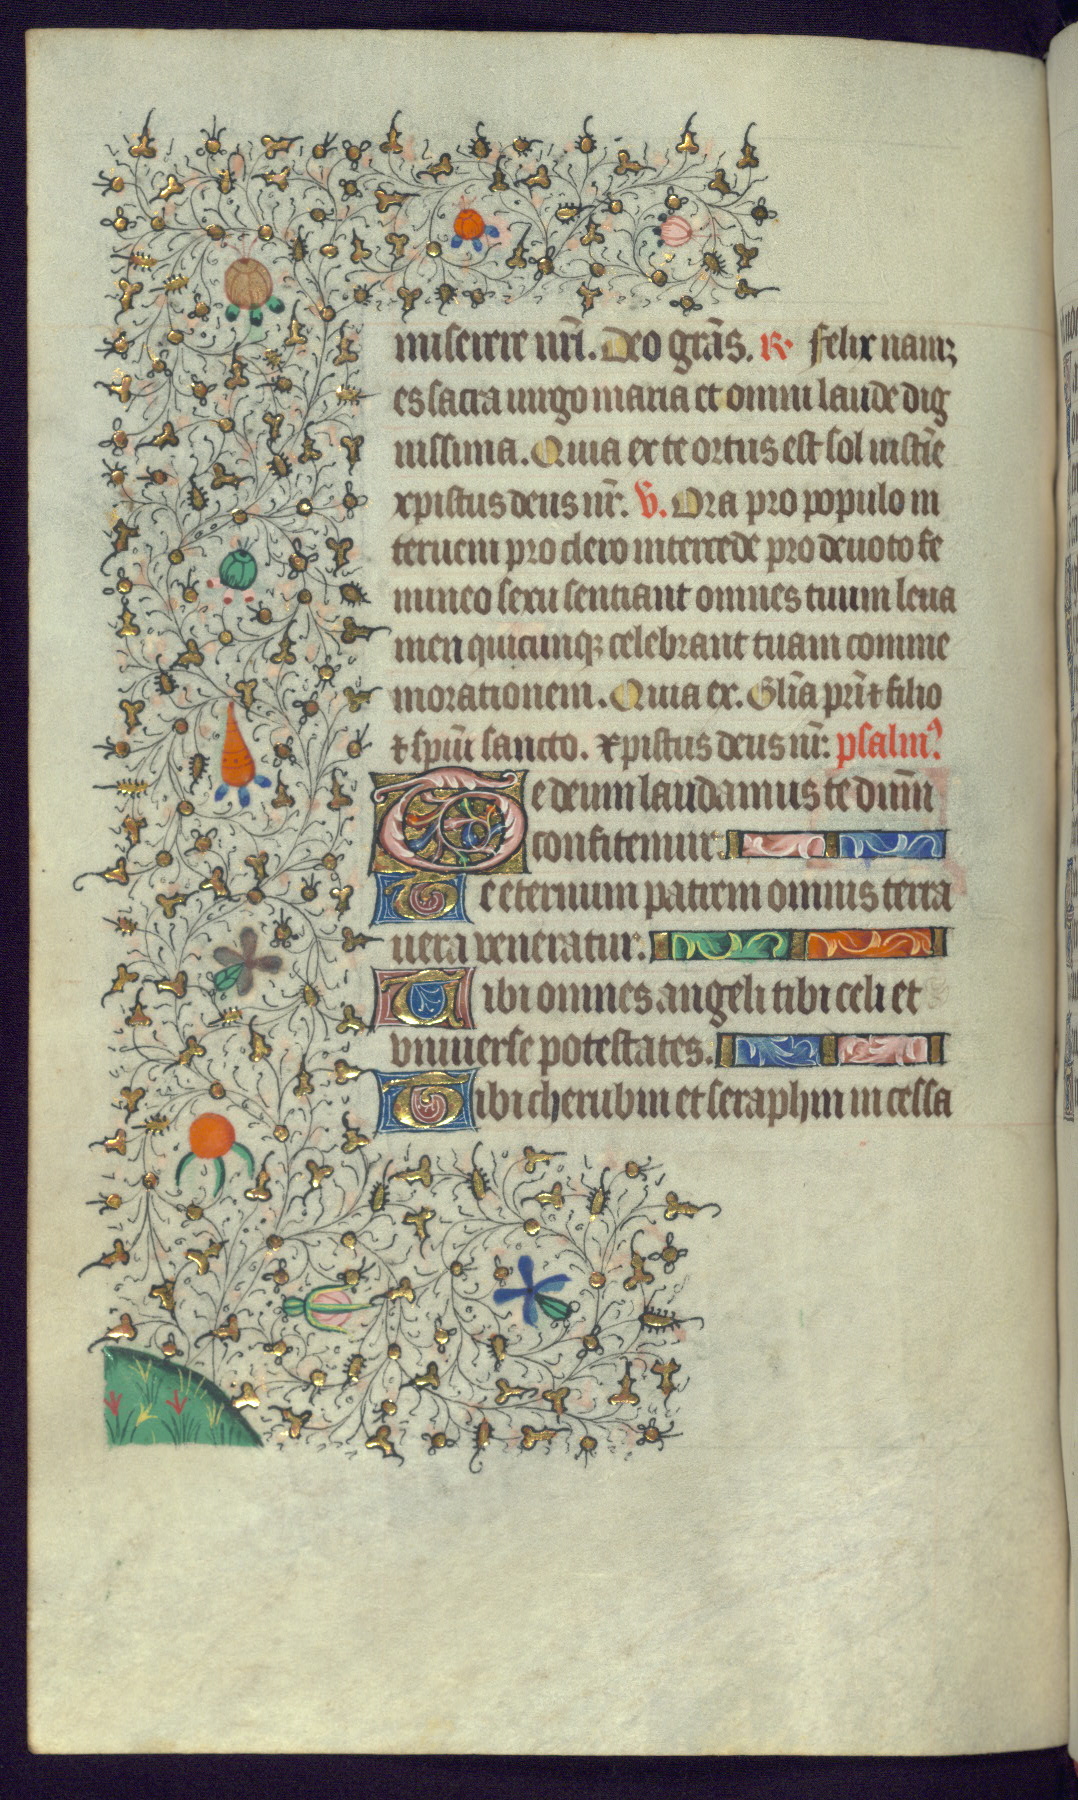 miserere nr̄i. Deo grās. R. Felix namqꝫ
es sacra uirgo maria et omni laude dig
nissima. Quia ex te ortus est sol iusticīe
xpistus deus nr̄. V. Ora pro populo in
terueni pro clero intercede pro deuoto fe
mineo sexu sentiant omnes tuum leua
men quicunqꝫ celebrant tuam comme
morationem. Quia ex. Glīa prī ⁊ filio
⁊ spūi sancto. xpistus deus nr̄: psalmꝰ
Te deum laudamus te dūm
confitemur.
Te eternum patrem omnis terra
uera veneratur.
Tibi omnes angeli tibi celi et
vniuerse potestates.
Tibi cherubin et seraphin incessa